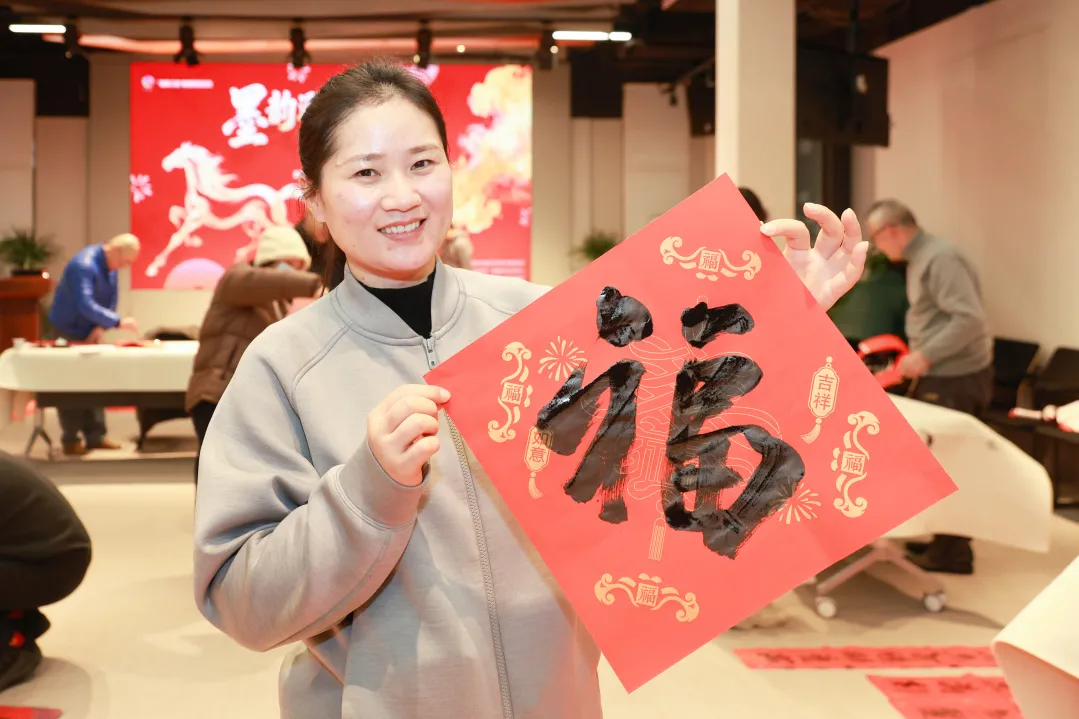 墨韵
福
福
福
如意
福
吉祥
福